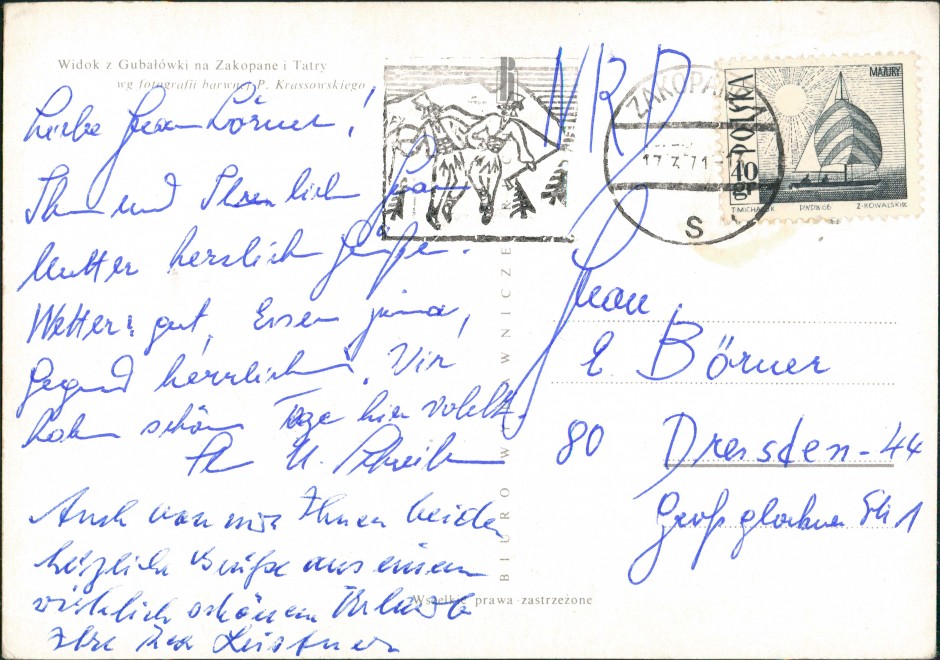 Widok z Gubałówki na Zakopane i Tatry
wg fotografii barwnej P. Krassowskiego
Liebe Frau Börner!
Ihnen und Ihrer lieben
Mutter herzlich Grüße.
Wetter gut, Essen prima,
Gegend herrlich. Wir
haben schöne Tage hier verlebt.
Ihr U.
Auch von mir Ihnen beiden
herzlich Grüße aus einem
wirklich schönen Urlaub
Ihre Leistner
NRD
ZAKOPANE
17.3.71
S
POLSKA
MAZURY
40 gr
T. MICHALUK PWPW 66 Z. KOWALSKI
Frau
E. Börner
80 Dresden-44
Großglockner Str 1
BIURO WYDAWNICZE RUCH
Wszelkie prawa zastrzeżone